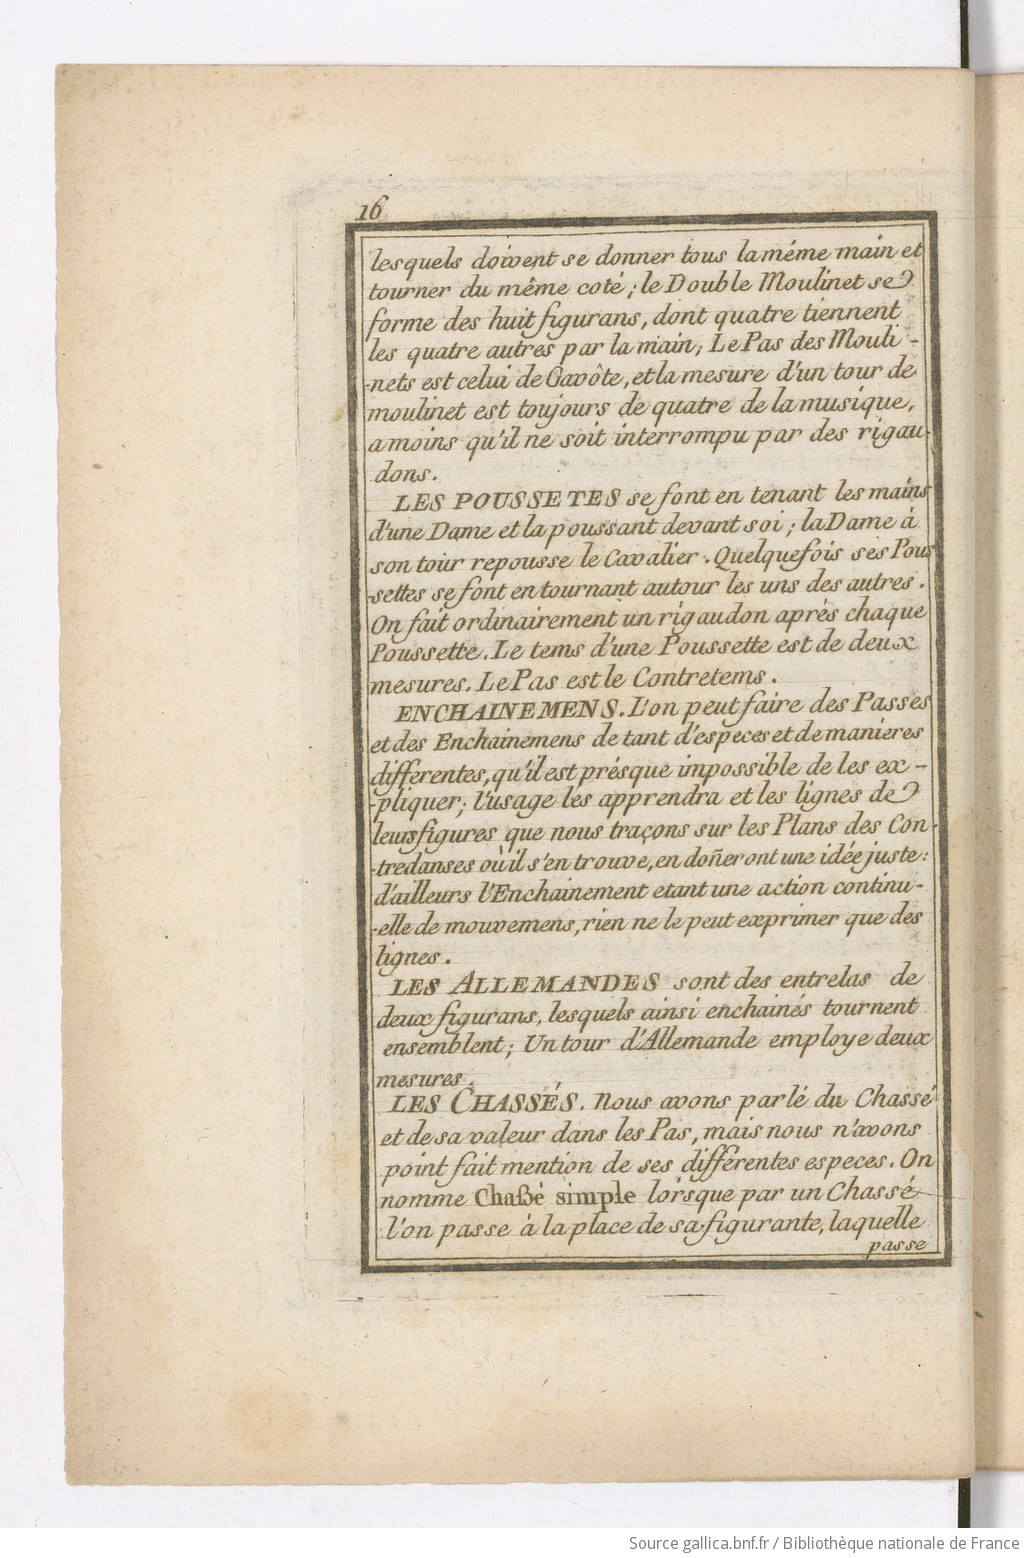 16
lesquels doivent se donner tous la méme main et
tourner du même coté; le Double Moulinet se
forme des huit figurans, dont quatre tiennent
les quatre autres par la main; Le Pas des Mouli-
-nets est celui de Gavôte, et la mesure d'un tour de
moulinet est toujours de quatre de la musique,
a moins qu'il ne soit interrompu par des rigau-
dons.
LES POUSSETES se font en tenant les mains
d'une Dame et la poussant devant soi; la Dame à
son tour repousse le Cavalier. Quelquefois ses Pous
-settes se font en tournant autour les uns des autres.
On fait ordinairement un rigaudon après chaque
Poussette. Le tems d'une Poussette est de deux
mesures. Le Pas est le Contretems.
ENCHAINEMENS. L'on peut faire des Passes
et des Enchainemens de tant d'especes et de manieres
différentes, qu'il est présque impossible de les ex-
-pliquer; l'usage les apprendra et les lignes de
leurs figures que nous traçons sur les Plans des Con-
-tredanses où il s'en trouve, en doñeront une idée juste:
d'ailleurs l'Enchainement etant une action continu-
-elle de mouvemens, rien ne le peut exprimer que des
lignes.
LES ALLEMANDES sont des entrelas de
deux figurans, lesquels ainsi enchainés tournent
ensemblent; Un tour d'Allemande employe deux
mesures.
LES CHASSÉS. Nous avons parlé du Chassé
et de sa valeur dans les Pas, mais nous n'avons
point fait mention de ses différentes especes. On
nomme Chaßé simple lorsque par un Chassé
l'on passe à la place de sa figurante, laquelle
passe
Source gallica.bnf.fr / Bibliothèque nationale de France